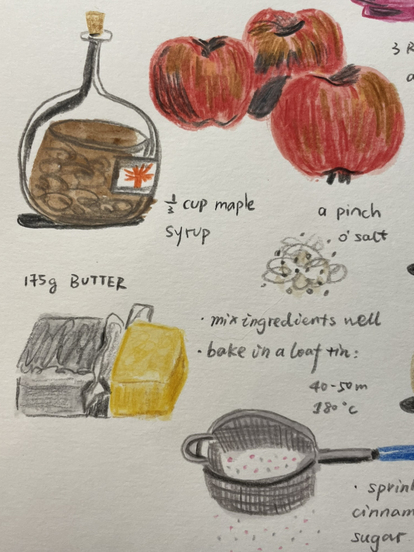 3
a
1/3 cup maple
syrup
a pinch
o' salt
175g BUTTER
• mix ingredients well
• bake in a loaf tin:
40-50m
180°C
• sprin
cinnam
sugar